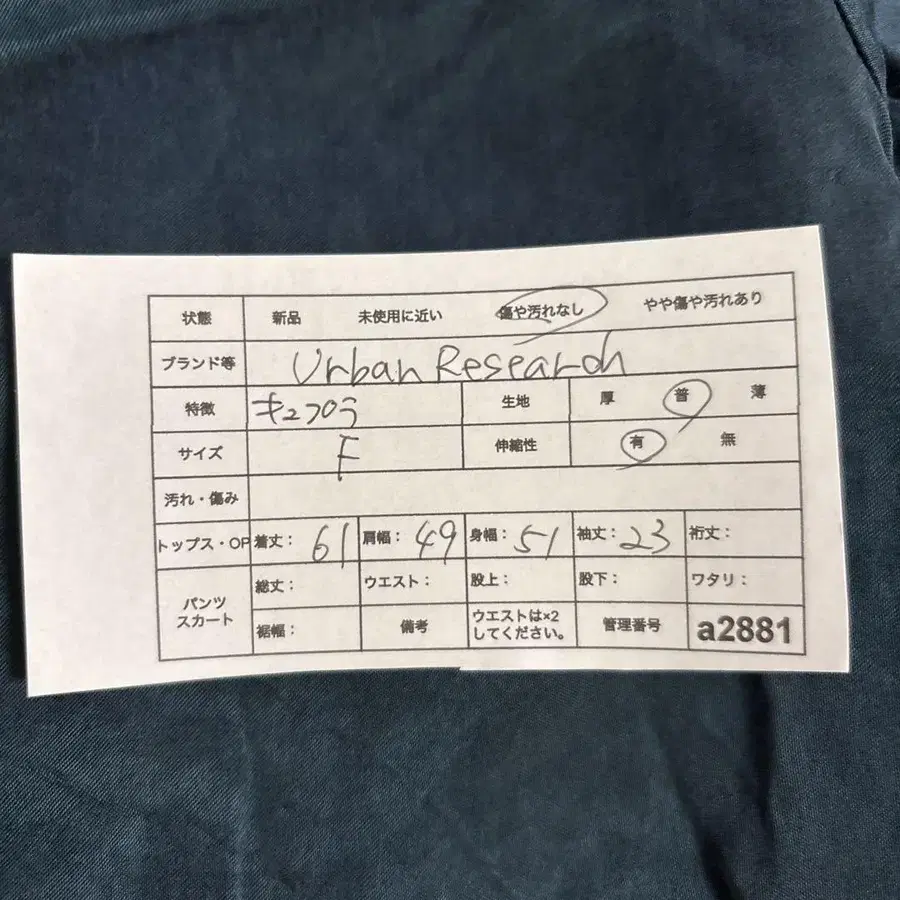 状態 新品 未使用に近い 傷や汚れなし やや傷や汚れあり
ブランド等 Urban Research
特徴 キュプロう 生地 厚 普 薄
サイズ F 伸縮性 有 無
汚れ・傷み
トップス・OP 着丈: 61 肩幅: 49 身幅: 51 袖丈: 23 裄丈:
パンツ スカート 総丈: ウエスト: 股上: 股下: ワタリ:
裾幅: 備考 ウエストは×2
してください。 管理番号 a2881